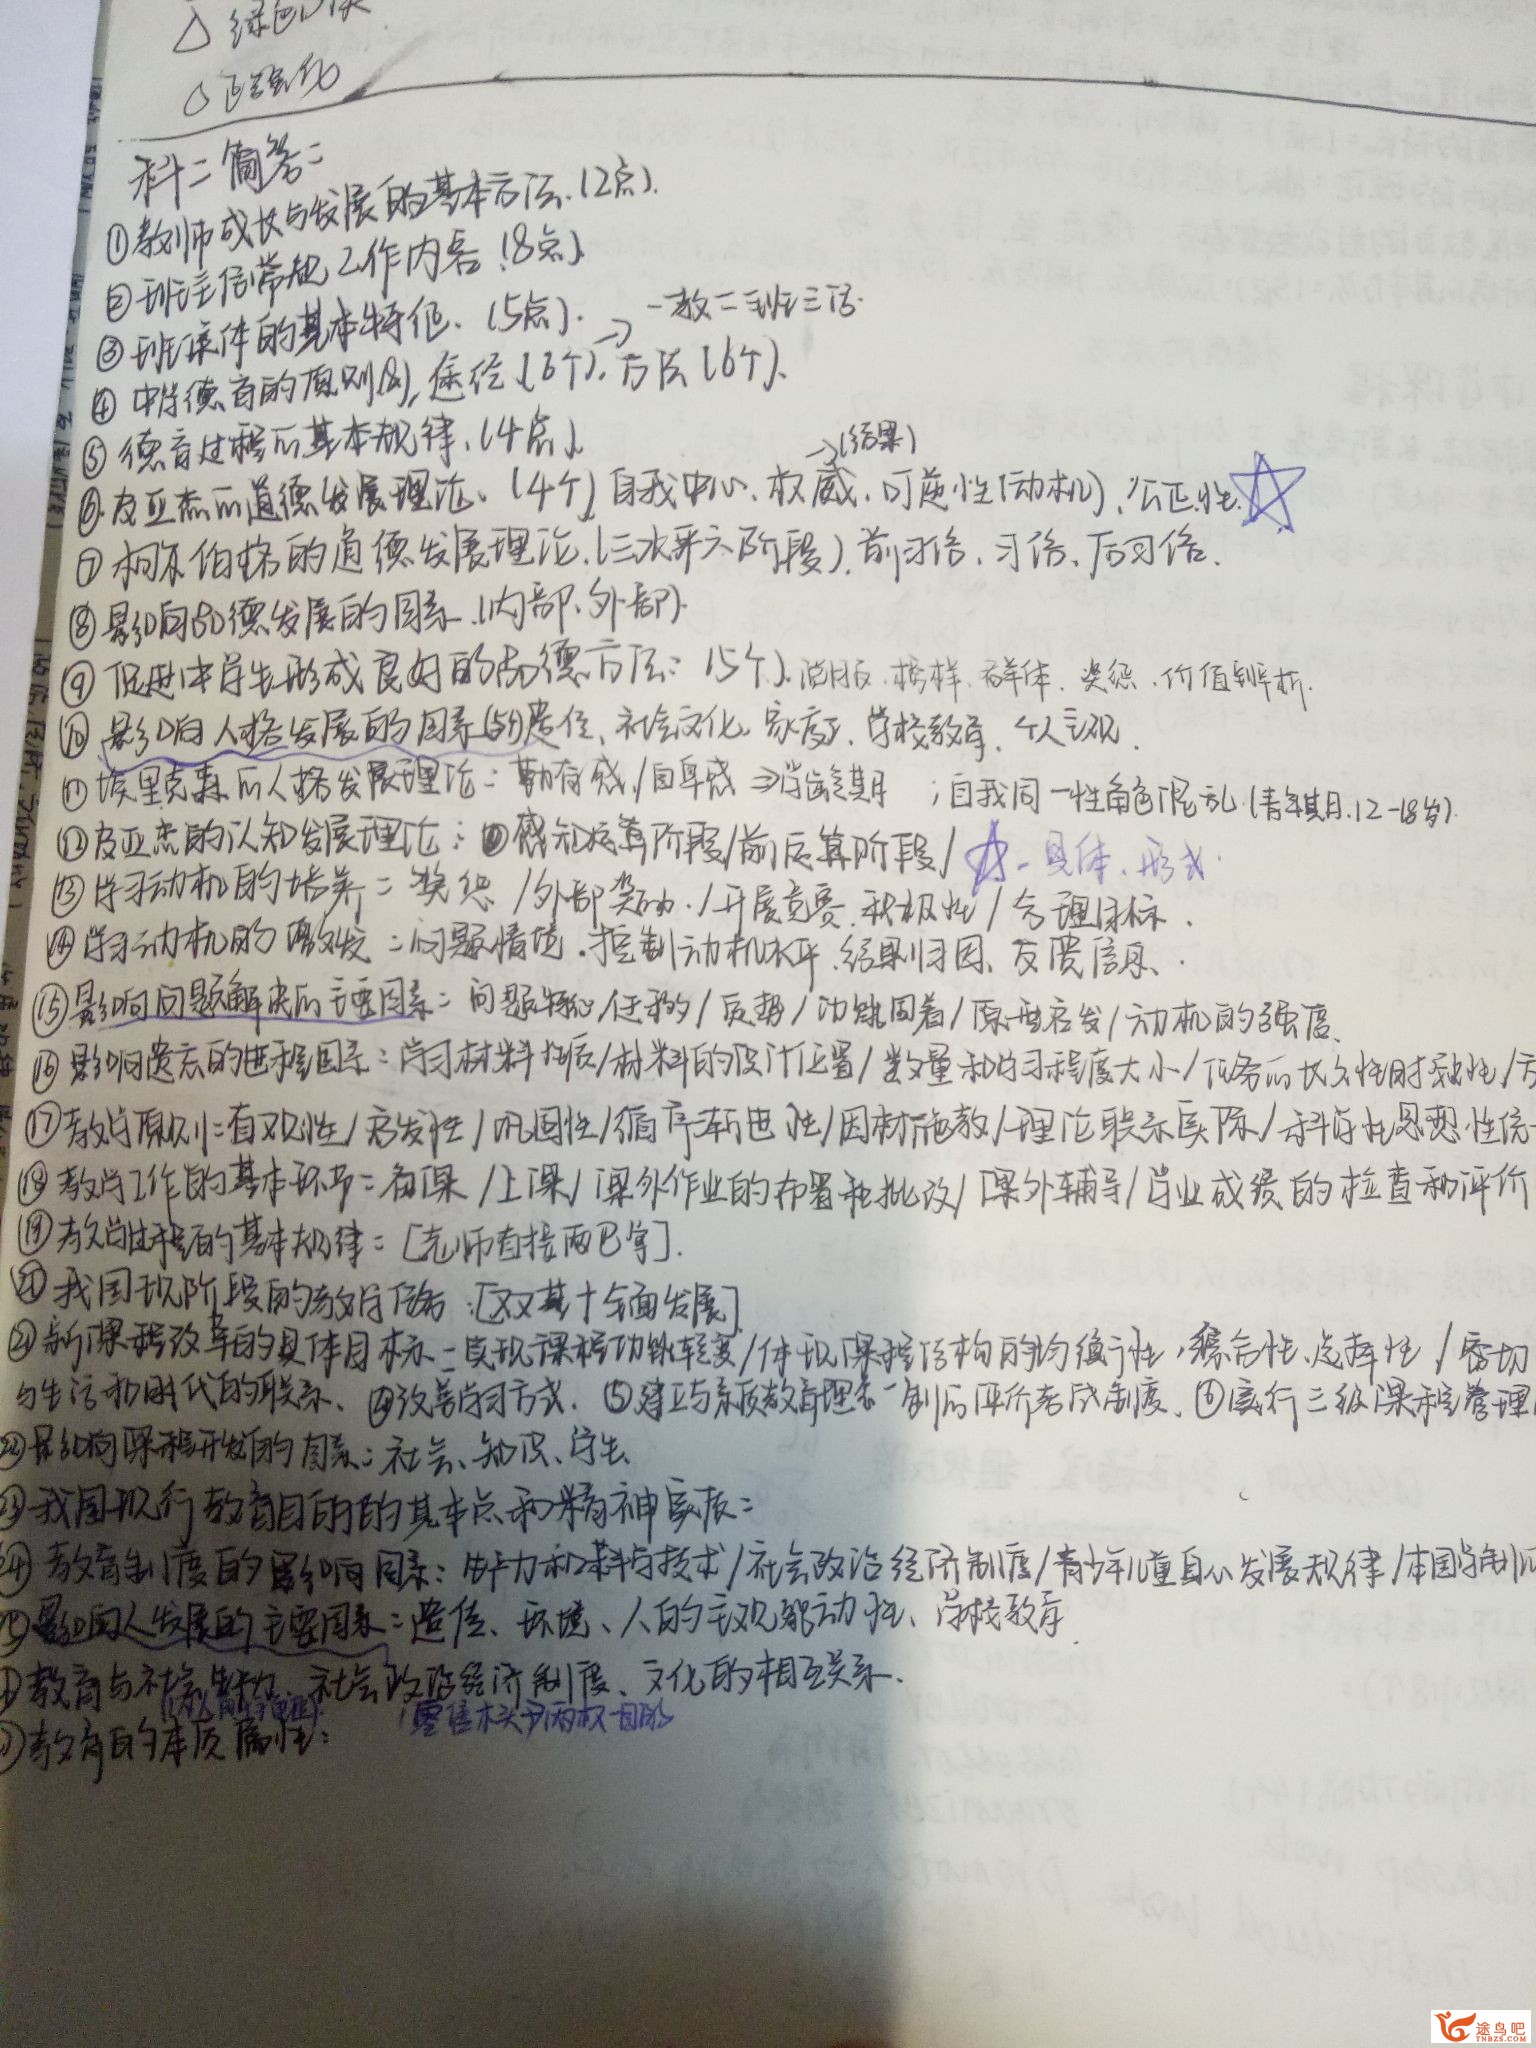 科二简答：
①教师成长与发展的基本方法.(2点).
②班主任常规工作内容(8点)
③班集体的基本特征.(5点). →一教二班三活
④中学德育的原则(8),途径(6个).方法(6个).
⑤德育过程的基本规律.(4点).
→(结果)
⑥皮亚杰的道德发展理论.(4个)自我中心.权威.可逆性(动机),公正性.☆
⑦柯尔伯格的道德发展理论.(三水平六阶段).前习俗、习俗、后习俗.
⑧影响品德发展的因素.(内部.外部).
⑨促进中学生形成良好的品德方法：(5个).说服.榜样.群体.奖惩.价值辨析.
⑩影响人格发展的因素(5个)遗传、社会文化、家庭、学校教育、个人主观.
⑪埃里克森的人格发展理论：勤奋感/自卑感⇒学龄期；自我同一性角色混乱.(青年期.12-18岁).
⑫皮亚杰的认知发展理论：感知运算阶段/前运算阶段/☆-具体.形式.
⑬学习动机的培养：奖惩/外部奖励./开展竞赛.积极性/合理目标.
⑭学习动机的激发：问题情境.控制动机水平.结果归因、反馈信息.
⑮影响问题解决的主要因素：问题特征/迁移/定势/功能固着/原型启发/动机的强度.
⑯影响遗忘的进程因素：学习材料性质/材料的位置/数量和学习程度大小/任务的长久性时/
⑰教学原则：直观性/启发性/巩固性/循序渐进性/因材施教/理论联系实际/科学性思想性统一
⑱教学工作的基本环节：备课/上课/课外作业的布置和批改/课外辅导/学业成绩的检查和评价
⑲教学过程的基本规律：[老师直接两巴掌].
我国现阶段的教学任务：[双基+全面发展]
㉑新课程改革的具体目标：实现课程功能转变/体现课程结构的均衡性,综合性.选择性/密切
与生活和时代的联系、④改善学习方式.⑤建立与素质教育理念一制的评价考试制度.⑥实行三级课程管理
㉒影响课程开发的因素：社会、知识、学生
㉓我国现行教育目的的基本点和精神实质：
㉔教育制度的影响因素：生产力和科学技术/社会政治经济制度/青少年儿童身心发展规律/本国学制
㉕影响人发展的主要因素：遗传、环境、人的主观能动性、学校教育
教育与社会生产力、社会政治经济制度、文化的相互关系.
教育的本质属性：
途鸟吧
TNBZS.COM